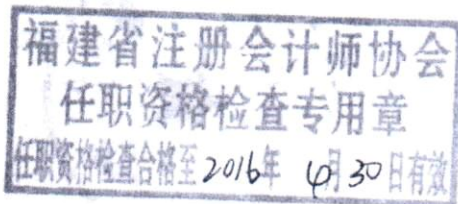 福建省注册会计师协会
任职资格检查专用章
任职资格检查合格至2016年 4月30日有效